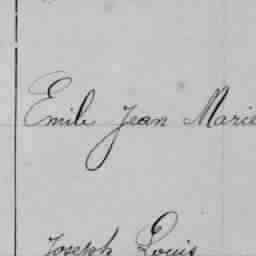 Emile Jean Marie
Joseph Louis